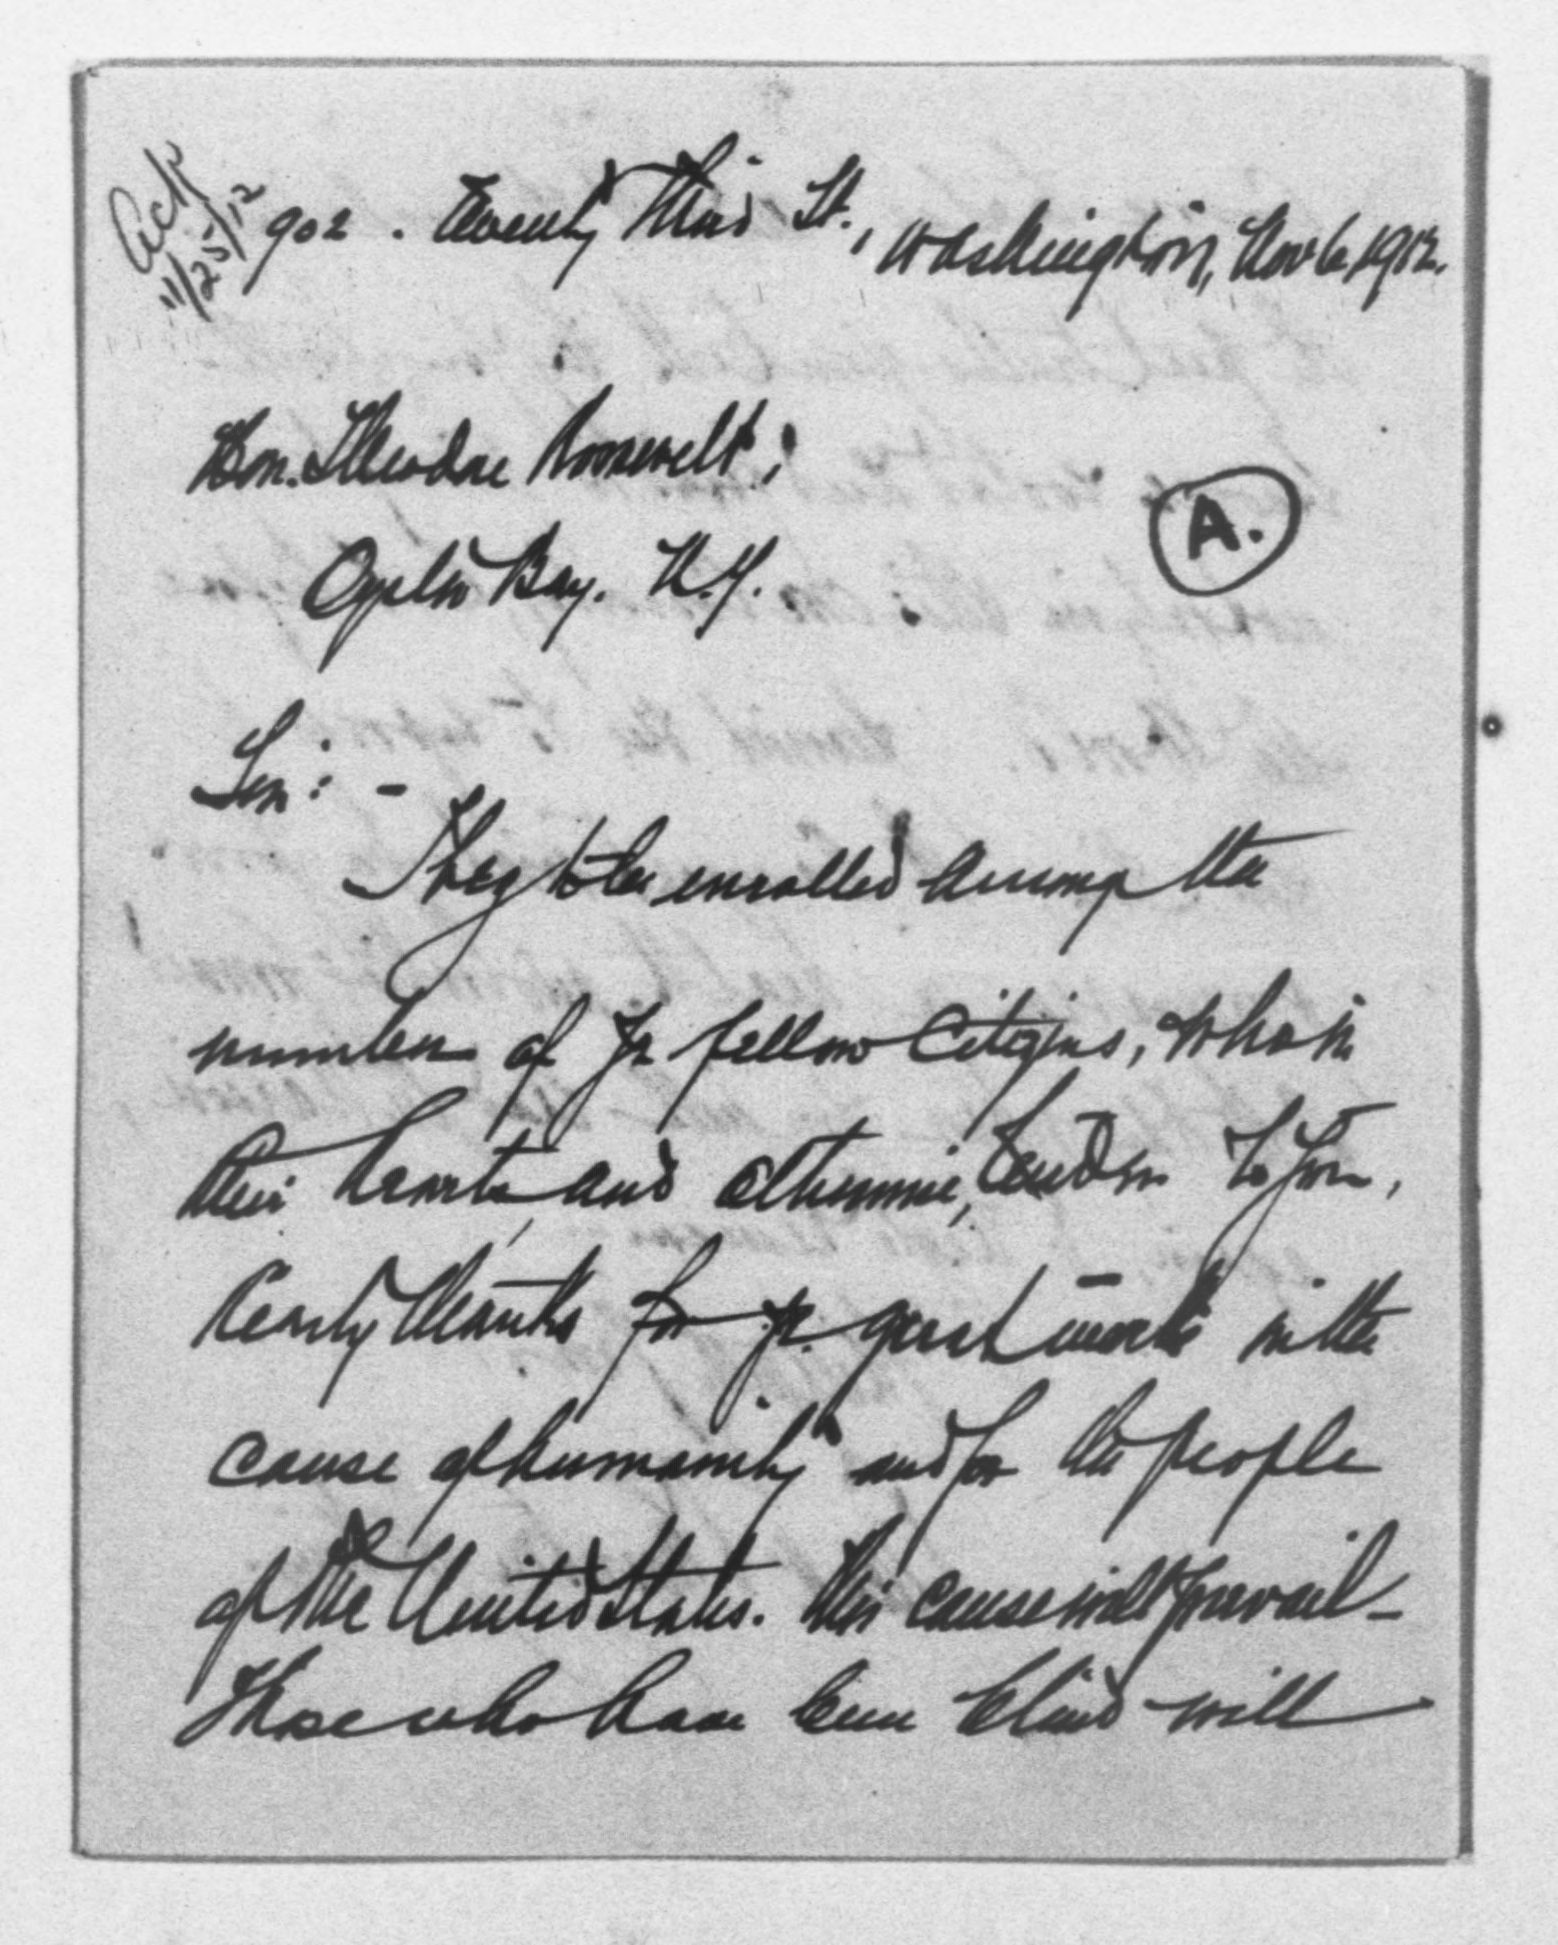 Ack
11/25/12
902. Twenty Third St., Washington, Nov 6, 1912.
Hon. Theodore Roosevelt;
A.
Oyster Bay. N.Y.
Sir: -
I beg to be enrolled among the
number of yr fellow Citizens, who in
their hearts and otherwise, tender to you,
hearty thanks for yr. great work in the
cause of humanity and for the people
of the United States. This cause will prevail -
Those who have been blind will